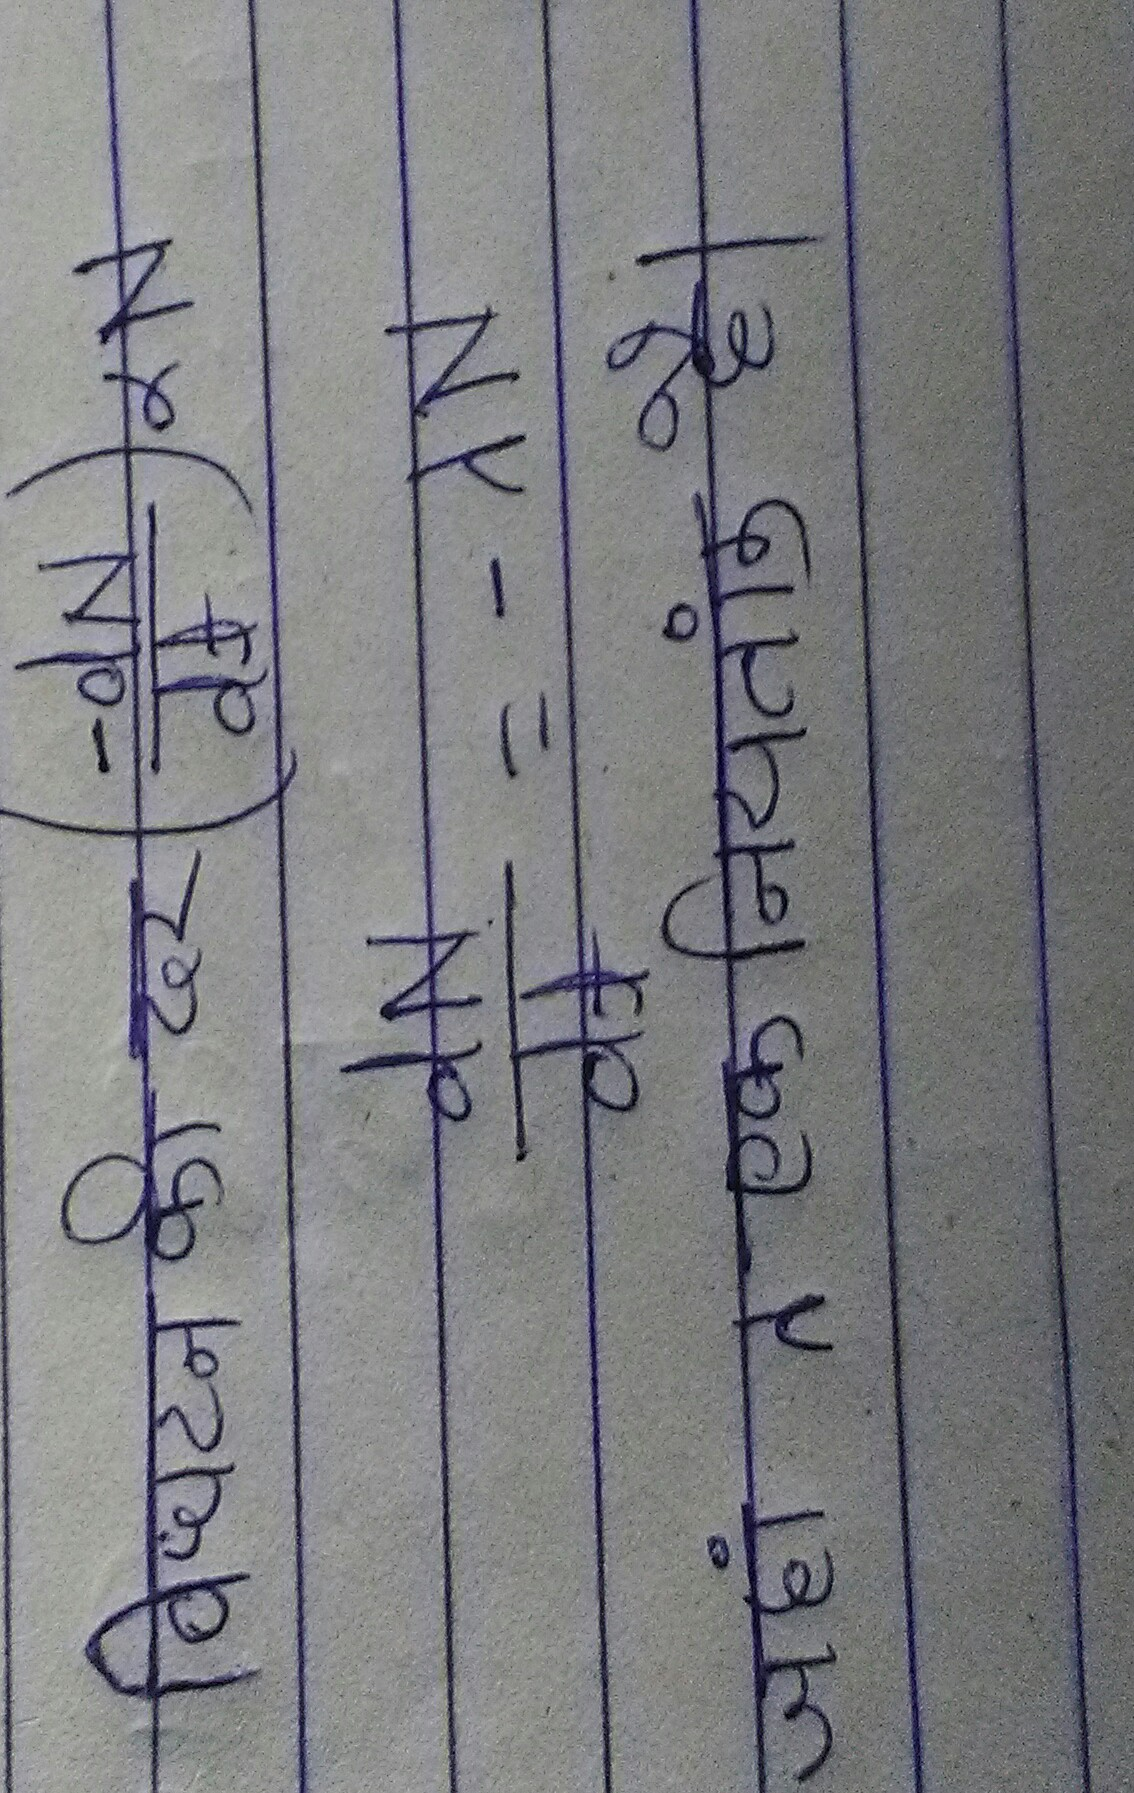 विघटन की दर (-dN/dt) ∝ N
dN/dt = -λN
यहां λ एक नियतांक है।